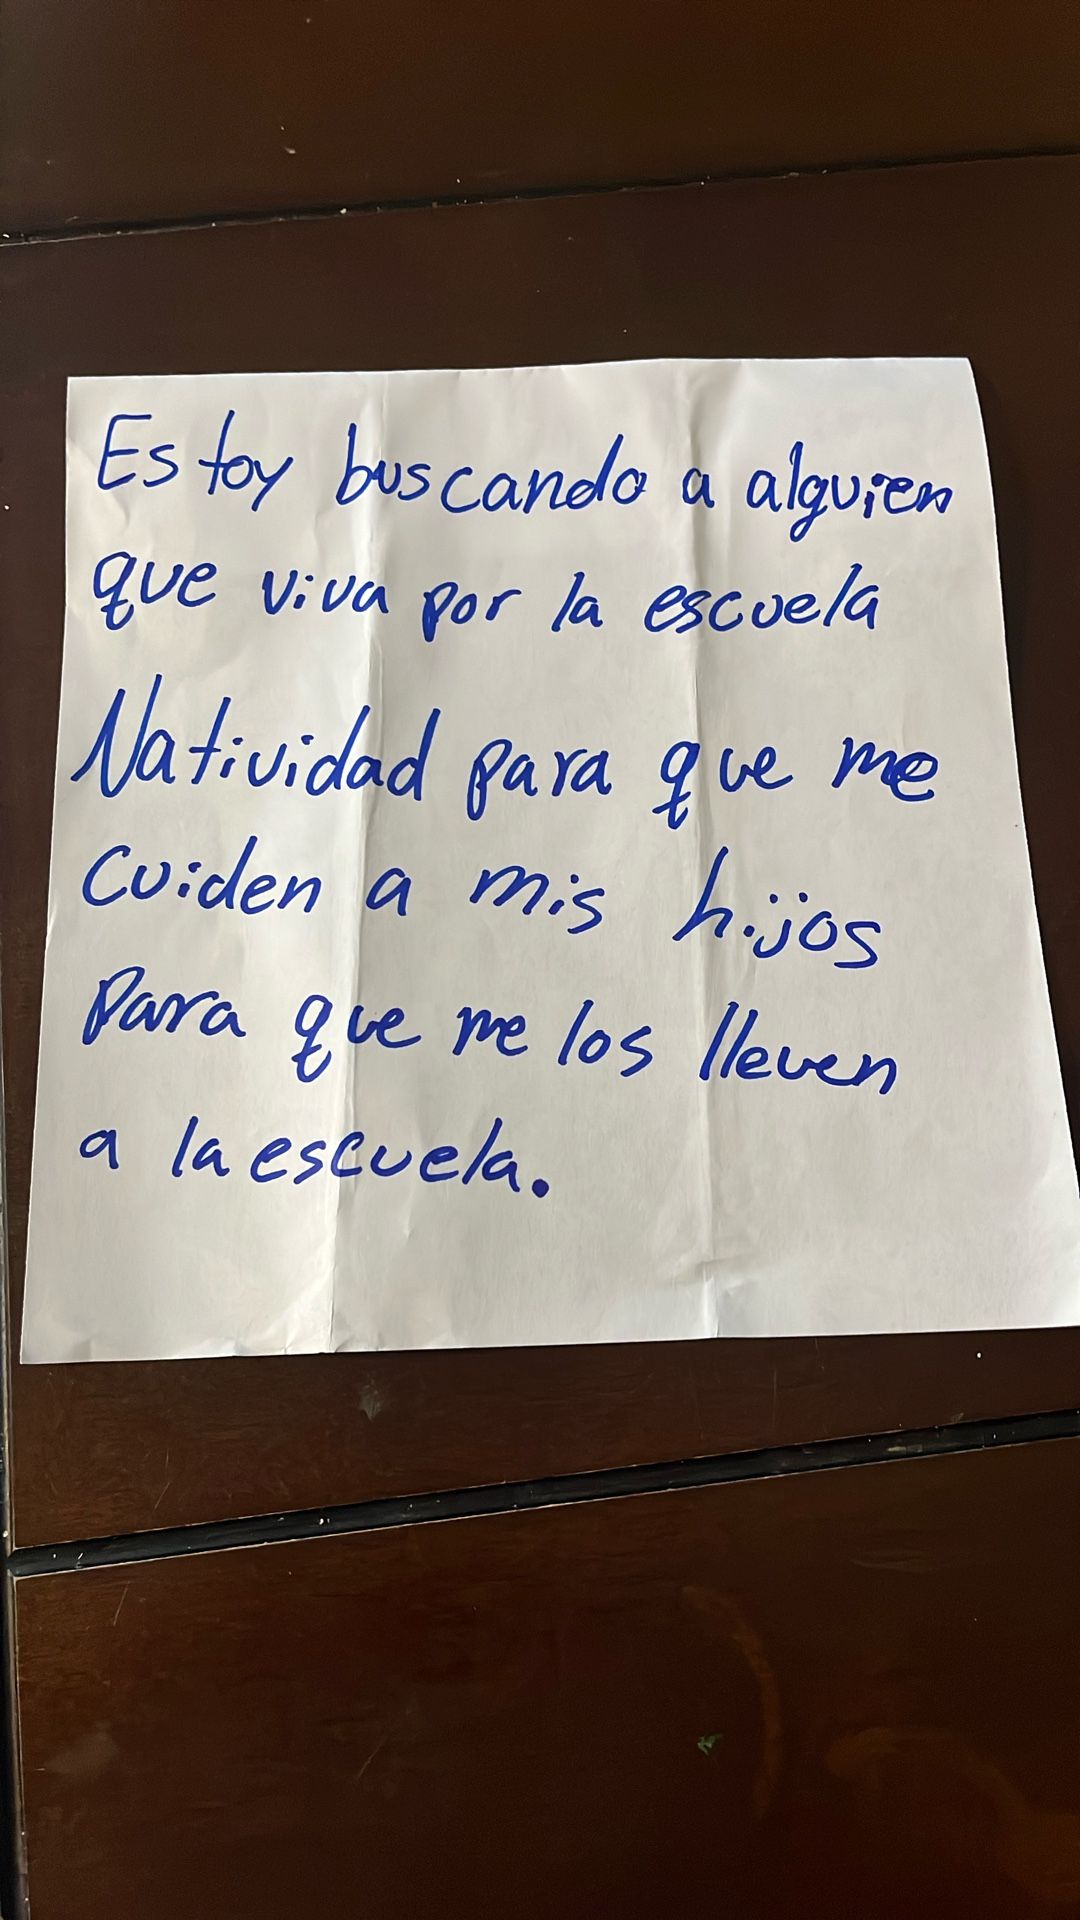 Estoy buscando a alguien
que viva por la escuela
Natividad para que me
cuiden a mis hijos
para que me los lleven
a la escuela.